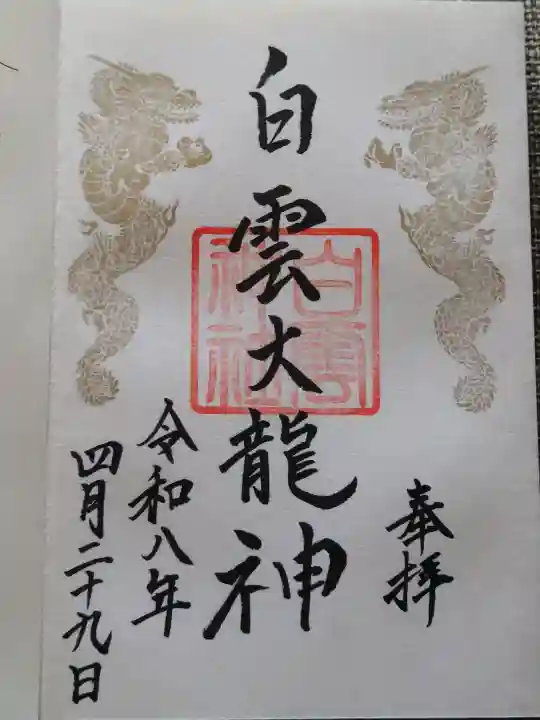 奉拝
白雲大龍神
白雲
神社
令和八年
四月二十九日